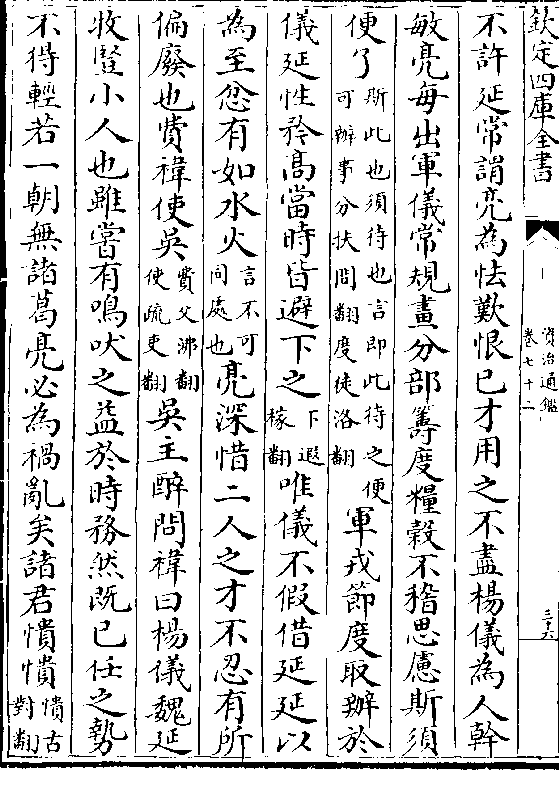 欽定四庫全書
資治通鑑
卷七十二
三十六
不許延常謂亮為怯歎恨已才用之不盡楊儀為人幹
敏亮每出軍儀常規畫分部籌度糧穀不稽思慮斯須
便了斯此也須待也言即此待之便可辦事分扶問翻度徒洛翻軍戎節度取辦於
儀延性矜高當時皆避下之下遐稼翻唯儀不假借延延以
為至忿有如水火言不可同處也亮深惜二人之才不忍有所
偏廢也費禕使吳費父沸翻使疏吏翻吳主醉問禕曰楊儀魏延
牧豎小人也雖嘗有鳴吠之益於時務然既已任之勢
不得輕若一朝無諸葛亮必為禍亂矣諸君憒憒憒古對翻